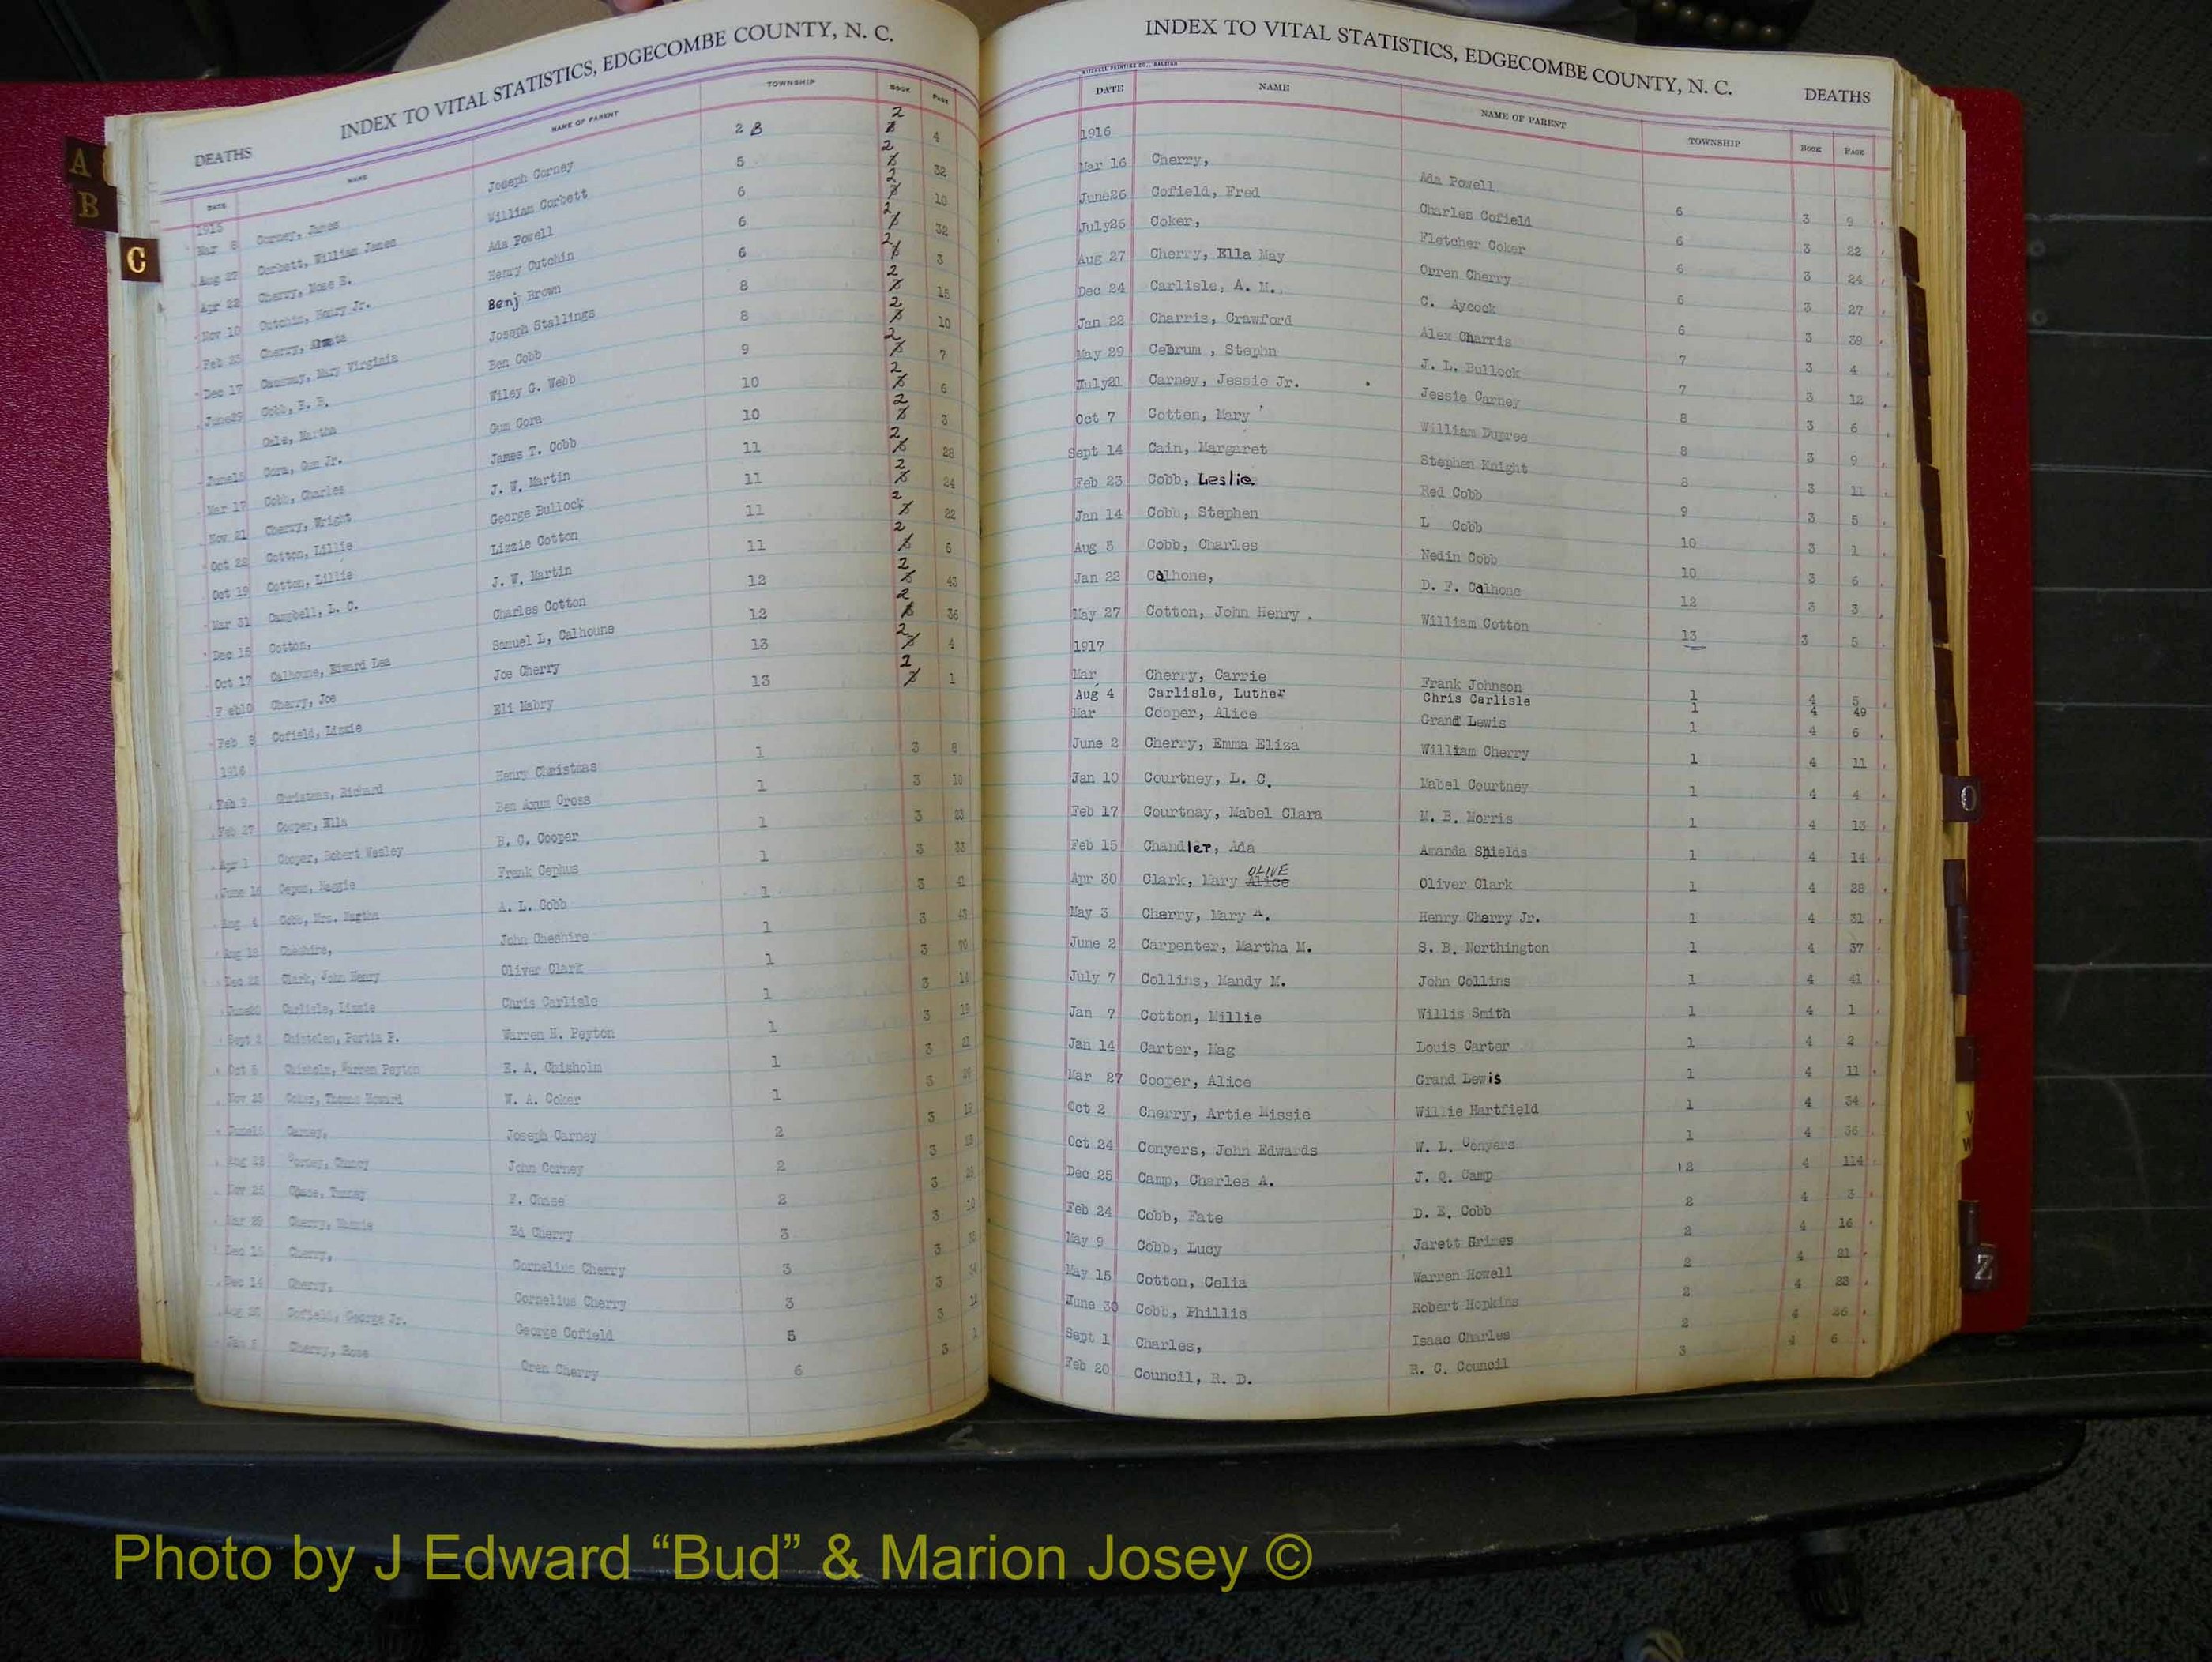 INDEX TO VITAL STATISTICS, EDGECOMBE COUNTY, N. C.
DEATHS
DATE NAME NAME OF PARENT TOWNSHIP BOOK PAGE
1915
Mar 8 Corney, James Joseph Corney 2 B 2 4
Aug 27 Corbett, William James William Corbett 5 2 32
Apr 22 Cherry, Rose E. Ada Powell 6 2 10
Nov 10 Cutchin, Henry Jr. Henry Cutchin 6 2 32
Feb 23 Cherry, Benj Brown 6 2 3
Dec 17 Causway, Mary Virginia Joseph Stallings 8 2 15
June29 Cobb, E. B. Ben Cobb 8 2 10
Cale, Martha Wiley G. Webb 9 2 7
June15 Cora, Gus Jr. Gus Cora 10 2 6
Mar 17 Cobb, Charles James T. Cobb 10 2 3
Nov 21 Cherry, Wright J. W. Martin 11 2 28
Oct 22 Cotton, Lillie George Bullock 11 2 24
Oct 19 Cotton, Lillie Lizzie Cotton 11 2 22
Mar 31 Campbell, L. C. J. W. Martin 11 2 6
Dec 15 Cotton, Charles Cotton 12 2 43
Oct 17 Calhoune, Edward Lea Samuel L, Calhoune 12 2 36
Feb10 Cherry, Joe Joe Cherry 13 2 4
Feb 8 Cofield, Lizzie Eli Mabry 13 2 1
1916
Feb 9 Christmas, Richard Henry Christmas 1 3 8
Feb 27 Cooper, Ella Ben Axum Cross 1 3 10
Apr 1 Cooper, Robert Wesley B. C. Cooper 1 3 23
June 16 Cepus, Maggie Frank Cephus 1 3 33
Aug 4 Cobb, Mrs. Martha A. L. Cobb 1 3 42
Aug 18 Cheshire, John Cheshire 1 3 43
Dec 22 Clark, John Henry Oliver Clark 1 3 70
June20 Carlisle, Lizzie Chris Carlisle 1 3 14
Sept 2 Chistolen, Portia P. Warren H. Peyton 1 3 19
Oct 5 Chisholm, Warren Peyton E. A. Chisholm 1 3 21
Nov 25 Coker, Thomas Howard W. A. Coker 1 3
Carney, Joseph Carney 2 3
Aug 22 John Corney 2 3
Nov 25 F. Chase 2 3
Mar 29 Cherry, Mamie Ed Cherry 3 3
Dec 15 Cherry, Cornelius Cherry 3 3
Dec 14 Cherry, Cornelius Cherry 3 3
Aug 20 Cofield, George Jr. George Cofield 5 3
Jan 5 Cherry, Rose Oren Cherry 6 3
INDEX TO VITAL STATISTICS, EDGECOMBE COUNTY, N. C.
DEATHS
MITCHELL PRINTING CO., RALEIGH
DATE NAME NAME OF PARENT TOWNSHIP BOOK PAGE
1916
Mar 16 Cherry, Ada Powell 6 3 9
June26 Cofield, Fred Charles Cofield 6 3 22
July26 Coker, Fletcher Coker 6 3 24
Aug 27 Cherry, Ella May Orren Cherry 6 3 27
Dec 24 Carlisle, A. M. C. Aycock 6 3 39
Jan 22 Charris, Crawford Alex Charris 7 3 4
May 29 Cebrum, Stephn J. L. Bullock 7 3 12
July21 Carney, Jessie Jr. Jessie Carney 8 3 6
Oct 7 Cotten, Mary William Dupree 8 3 9
Sept 14 Cain, Margaret Stephen Knight 8 3 11
Feb 23 Cobb, Leslie Red Cobb 9 3 5
Jan 14 Cobb, Stephen L Cobb 10 3 1
Aug 5 Cobb, Charles Nedin Cobb 10 3 6
Jan 22 Calhone, D. F. Calhone 12 3 3
May 27 Cotton, John Henry . William Cotton 13 3 5
1917
Mar Cherry, Carrie Frank Johnson 1 4 5
Aug 4 Carlisle, Luther Chris Carlisle 1 4 49
Mar Cooper, Alice Grand Lewis 1 4 6
June 2 Cherry, Emma Eliza William Cherry 1 4 11
Jan 10 Courtney, L. C. Mabel Courtney 1 4 4
Feb 17 Courtnay, Mabel Clara M. B. Morris 1 4 13
Feb 15 Chandler, Ada Amanda Shields 1 4 14
Apr 30 Clark, Mary Alice OLIVE Oliver Clark 1 4 28
May 3 Cherry, Mary A. Henry Cherry Jr. 1 4 31
June 2 Carpenter, Martha M. S. B. Northington 1 4 37
July 7 Collins, Mandy M. John Collins 1 4 41
Jan 7 Cotton, Millie Willis Smith 1 4 1
Jan 14 Carter, Mag Louis Carter 1 4 2
Mar 27 Cooper, Alice Grand Lewis 1 4 11
Oct 2 Cherry, Artie Missie Willie Hartfield 1 4 34
Oct 24 Conyers, John Edwards W. L. Conyers 1 4 36
Dec 25 Camp, Charles A. J. Q. Camp 12 4 114
Feb 24 Cobb, Fate D. E. Cobb 2 4 3
May 9 Cobb, Lucy Jarett Grimes 2 4 16
May 15 Cotton, Celia Warren Howell 2 4 21
June 30 Cobb, Phillis Robert Hopkins 2 4 23
Sept 1 Charles, Isaac Charles 2 4 26
Feb 20 Council, R. D. R. C. Council 3 4 6
A
B
C
O
V
W
Z
Photo by J Edward “Bud” & Marion Josey ©